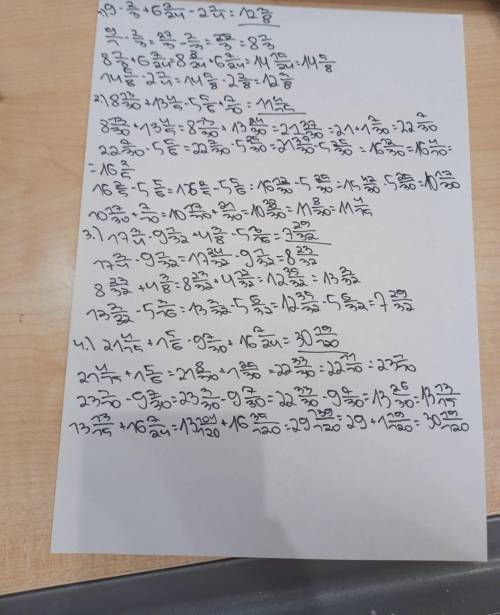 1) 9 - 2/3 + 6 7/24 - 2 1/4 = 12 3/8
9/1 - 2/3 = 27/3 - 2/3 = 25/3 = 8 1/3
8 1/3 + 6 7/24 = 8 8/24 + 6 7/24 = 14 15/24 = 14 5/8
14 5/8 - 2 1/4 = 14 5/8 - 2 2/8 = 12 3/8
2) 8 13/30 + 13 4/5 - 5 5/6 + 7/10 = 11 4/15
8 13/30 + 13 4/5 = 8 13/30 + 13 24/30 = 21 37/30 = 21 + 1 7/30 = 22 7/30
22 7/30 - 5 5/6 = 22 7/30 - 5 25/30 = 21 37/30 - 5 25/30 = 16 12/30 = 16 4/10 =
= 16 2/5
16 2/5 - 5 5/6 = 16 2/5 - 5 5/6 = 16 12/30 - 5 25/30 = 15 42/30 - 5 25/30 = 10 17/30
10 17/30 + 7/10 = 10 17/30 + 21/30 = 10 38/30 = 11 8/30 = 11 4/15
3.) 17 3/4 - 9 1/32 + 4 3/8 - 5 3/16 = 7 29/32
17 3/4 - 9 1/32 = 17 24/32 - 9 1/32 = 8 23/32
8 23/32 + 4 3/8 = 8 23/32 + 4 12/32 = 12 35/32 = 13 3/32
13 3/32 - 5 3/16 = 13 3/32 - 5 6/32 = 12 35/32 - 5 6/32 = 7 29/32
4.) 21 4/15 + 1 5/6 - 9 7/30 + 16 7/24 = 30 19/120
21 4/15 + 1 5/6 = 21 8/30 + 1 25/30 = 22 33/30 = 22 11/10 = 23 1/10
23 1/10 - 9 7/30 = 23 3/30 - 9 7/30 = 22 33/30 - 9 7/30 = 13 26/30 = 13 13/15
13 13/15 + 16 7/24 = 13 104/120 + 16 35/120 = 29 139/120 = 29 + 1 19/120 = 30 19/120